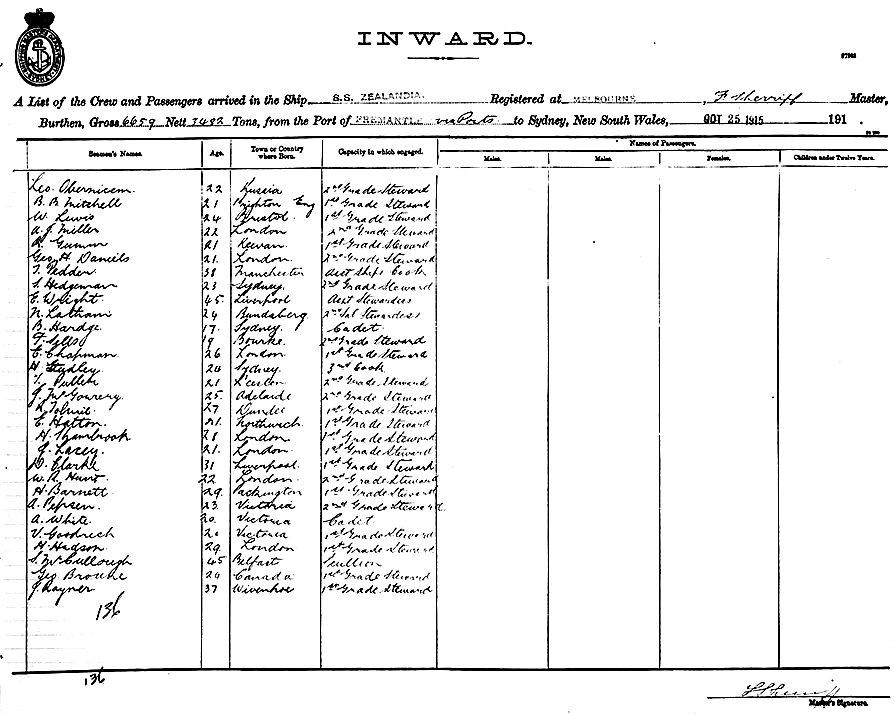 INWARD.
A List of the Crew and Passengers arrived in the Ship S.S. ZEALANDIA. Registered at MELBOURNE, F Sherriff Master,
Burthen, Gross 6659 Nett 3492 Tons, from the Port of FREMANTLE via Ports to Sydney, New South Wales, OCT 25 1915 191 .
Seamen's Names. Age. Town or Country where Born. Capacity in which engaged. Names of Passengers.
Males. Males. Females. Children under Twelve Years.
Leo. 22 Russia 2nd Grade Steward
B. B. Mitchell 21 Brighton Eng 1st Grade Steward
W. Lewis 24 Bristol. 1st Grade Steward
A. J. Miller 22 London 2nd Grade Steward
R. Gumm 21 1st Grade Steward
Geo. H. Daniels 21. London. 2nd Grade Steward
T. Pedden 38 Manchester Asst Ships Cook
S. Hedgeman 23 Sydney. 2nd Grade Steward
E. Wright 45 Liverpool Asst Stewardess
N. Latham 24 Bundaberg 2nd Sal Stewardess
B. Hardge. 17. Sydney. Cadet
19 Bourke. 2nd Grade Steward
E. Chapman 26 London 1st Grade Steward
H. Studley 24 Sydney. 3rd Cook
T. Pullen 21 London 2nd Grade Steward
J. McGowery 25. Adelaide 2nd Grade Steward
27 Dundee 1st Grade Steward
E. Hatton. 21. Northwich 1st Grade Steward
H. Shambrook 28 London 1st Grade Steward
J. Lacey. 21. London. 1st Grade Steward
D. Clarke 31 Liverpool. 1st Grade Steward
W. R. Hunt 22 London. 2nd Grade Steward
H. Barnett 29. Packington 1st Grade Steward
A. 23. Victoria 2nd Grade Steward.
A. White. 20. Victoria Cadet
V. Goodrich Victoria 1st Grade Steward
H. Hudson. 29. London 1st Grade Steward
S. McCullough 45 Belfast Scullion
Geo Brourke 24 Canada 1st Grade Steward
J. Rayner 37 Wivenhoe 1st Grade Steward
136
136
Master's Signature.